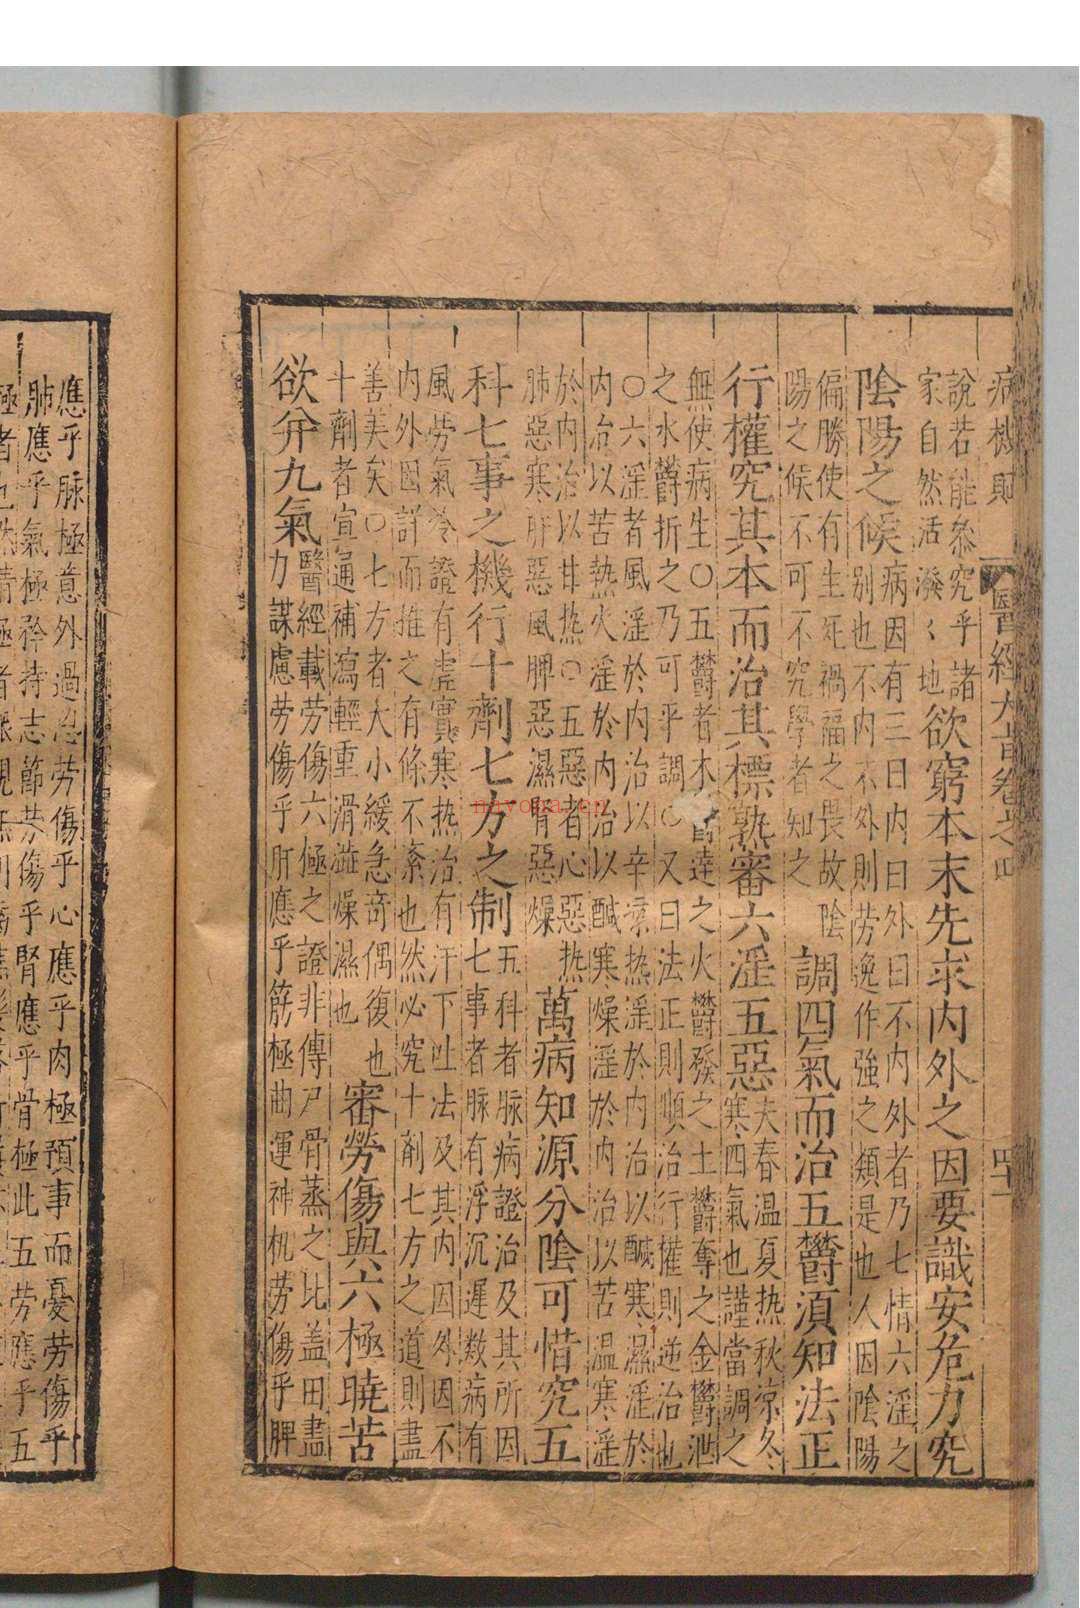 病機則 醫經大旨卷之四 四十一
說若能叅究乎諸
家自然活潑〻地
欲窮本末先求內外之因要識安危力究
陰陽之候
病因有三曰內曰外曰不內外者乃七情六淫之
别也不內不外則劳逸作強之類是也人因陰陽
偏勝使有生死禍福之畏故陰
陽之候不可不究學者知之
調四氣而治五欝須知法正
行權究其本而治其標熟審六淫五惡
夫春温夏热秋凉冬
寒四氣也謹當調之
無使病生〇五欝者木欝達之火欝發之土欝奪之金欝泄
之水欝折之乃可平調〇又曰法正則順治行權則逆治也
〇六淫者風淫於內治以辛凉热淫於內治以醎寒濕淫於
內治以苦熱火淫於內治以醎寒燥淫於內治以苦温寒淫
於內治以甘热〇五惡者心惡热
肺惡寒肝惡風脾惡濕腎惡燥
萬病知源分陰可惜究五
科七事之機行十劑七方之制
五科者脉病證治及其所因
七事者脉有浮沉遲数病有
風劳氣冷證有虗實寒热治有汗下吐法及其内因外因不
内外因詳而推之有條不紊也然必究十剤七方之道則盡
善美矣〇七方者大小緩急竒偶復也
十劑者宣通補瀉輕重滑澁燥濕也
審勞傷與六極曉苦
欲弁九氣
醫經載劳傷六極之證非傳尸骨蒸之比盖田盡
力謀慮劳傷乎肝應乎筋極曲運神机劳傷乎脾
應乎脉極意外過思劳傷乎心應乎肉極預事而憂劳傷乎
肺應乎氣極矜持志節劳傷乎腎應乎骨極此五劳應乎五